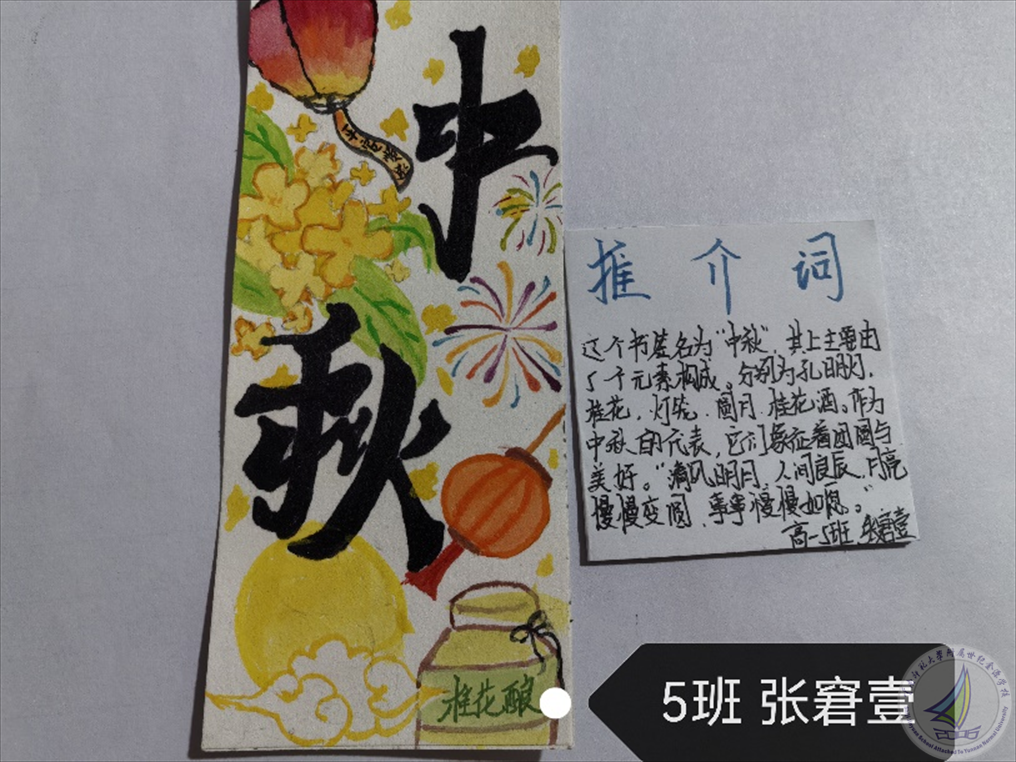 中
秋
桂花酿
推介词
这个书签名为“中秋”,其上主要由
5个元素构成。分别为孔明灯,
桂花,灯笼,圆月,桂花酒。作为
中秋的代表,它们象征着团圆与
美好。“清风明月,人间良辰,月亮
慢慢变圆,事事慢慢如愿。”
高一5班 张窘壹
5班 张窘壹